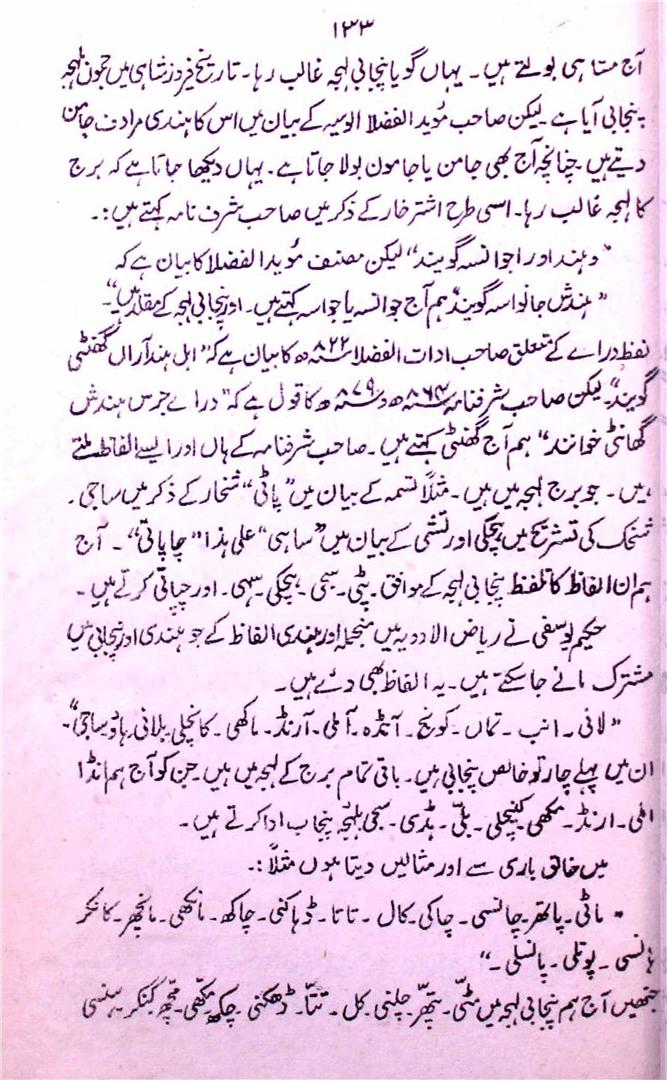 ۱۳۳
آج متا ہی بولتے ہیں۔ یہاں گویا پنجابی لہجہ غالب رہا۔ تاریخ فیروز شاہی میں جموں بلہجہ
پنجابی آیا ہے۔ لیکن صاحب مُوید الفضلا الوسیہ کے بیان میں اس کا ہندی مرادف جامن
دیتے ہیں۔ چنانچہ آج بھی جامن یا جامون بولا جاتا ہے۔ یہاں دیکھا جاتا ہے کہ برج
کا لہجہ غالب رہا۔ اسی طرح اشتر خار کے ذکر میں صاحب شرف نامہ کہتے ہیں :۔
"دہند اورا جوانسہ گویند" لیکن مصنف مُوید الفضلا کا بیان ہے کہ
"ہندش جانواسہ گویند" ہم آج جوانسہ یا جواسہ کہتے ہیں۔ اور پنجابی لہجہ کے مقلد ہیں"۔
لفظ درائے کے متعلق صاحب ادات الفضلا ۸۲۲ھ کا بیان ہے کہ "اہل ہند آراں گھنٹی
گویند"۔ لیکن صاحب شرفنامہ ۸۶۲ھ و ۸۷۹ھ کا قول ہے کہ "درائے جرس ہندش
گھانٹی خوانند" ہم آج گھنٹی کہتے ہیں۔ صاحب شرفنامہ کے ہاں اور ایسے الفاظ ملتے
ہیں۔ جو برج لہجہ میں ہیں۔ مثلاً تسمہ کے بیان میں "پاٹی" شخار کے ذکر میں ساجی۔
کی تشریح میں ہچکی اور تشی کے بیان میں "ساہی" علی ہذا "چاپاتی"۔ آج
ہم ان الفاظ کا تلفظ پنجابی لہجہ کے موافق۔ پٹی۔ سجی۔ ہچکی۔ سہی۔ اور چپاتی کرتے ہیں۔
حکیم یوسفی نے ریاض الادویہ میں منجملہ اور ہندی الفاظ کے جو ہندی اور پنجابی میں
مشترک مانے جا سکتے ہیں۔ یہ الفاظ بھی دئے ہیں۔
"لائی۔ انب۔ تماں۔ کونج۔ آنڈہ۔ آملی۔ آرنڈ۔ ماکھی۔ کانچلی بلائی ہاڈ ساجی"۔
ان میں پہلے چار تو خالص پنجابی ہیں۔ باقی تمام برج کے لہجہ میں ہیں۔ جن کو آج ہم انڈا
املی۔ ارنڈ۔ مکھی کینچلی۔ بلّی۔ ہڈی۔ سجی بلہجہ پنجاب ادا کرتے ہیں۔
میں خالق باری سے اور مثالیں دیتا ہوں مثلاً :۔
"ماٹی۔ پاتھر۔ چانسی۔ چاکی۔ کال۔ تاتا۔ ڈہاکنی۔ چاکھ۔ مانکھی۔ مانچھر۔ کانکر
ہانسی۔ پوتلی۔ پانسلی۔"
جنھیں آج ہم پنجابی لہجہ میں مٹّی۔ پتھّر۔ چلنی۔ کل۔ تتّا۔ ڈھکنی۔ چکھ۔ مکّھی۔ مچّھر کنکر۔ ہنسی